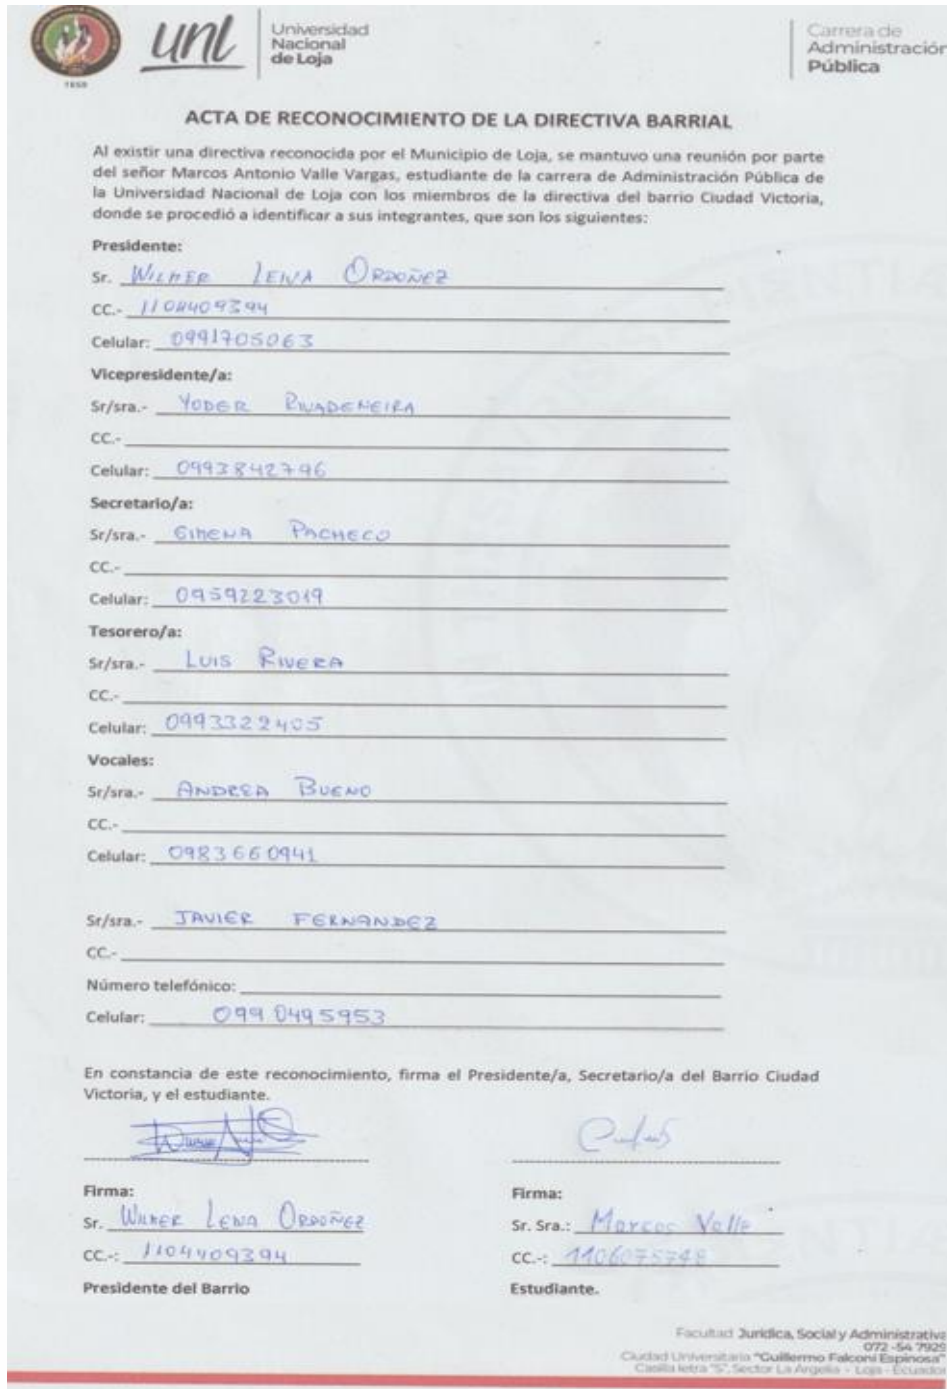 1859
unl
Universidad
Nacional
de Loja
Carrera de
Administración
Pública
ACTA DE RECONOCIMIENTO DE LA DIRECTIVA BARRIAL
Al existir una directiva reconocida por el Municipio de Loja, se mantuvo una reunión por parte
del señor Marcos Antonio Valle Vargas, estudiante de la carrera de Administración Pública de
la Universidad Nacional de Loja con los miembros de la directiva del barrio Ciudad Victoria,
donde se procedió a identificar a sus integrantes, que son los siguientes:
Presidente:
Sr. WILMER LEWA ORDOÑEZ
CC.- 1104409394
Celular: 0991705063
Vicepresidente/a:
Sr/sra.- YODER RIVADENEIRA
CC.-
Celular: 0993842796
Secretario/a:
Sr/sra.- GIMENA PACHECO
CC.-
Celular: 0959223019
Tesorero/a:
Sr/sra.- LUIS RIVERA
CC.-
Celular: 0993322405
Vocales:
Sr/sra.- ANDREA BUENO
CC.-
Celular: 0983660941
Sr/sra.- JAVIER FERNANDEZ
CC.-
Número telefónico:
Celular: 0990495953
En constancia de este reconocimiento, firma el Presidente/a, Secretario/a del Barrio Ciudad
Victoria, y el estudiante.
Firma:
Sr. WILMER LEWA ORDOÑEZ
CC.-: 1104409394
Presidente del Barrio
Firma:
Sr. Sra.: Marcos Valle
CC.-: 1106075748
Estudiante.
Facultad Jurídica, Social y Administrativa
072 -54 7929
Ciudad Universitaria "Guillermo Falconí Espinosa"
Casilla letra "S", Sector La Argelia - Loja - Ecuador